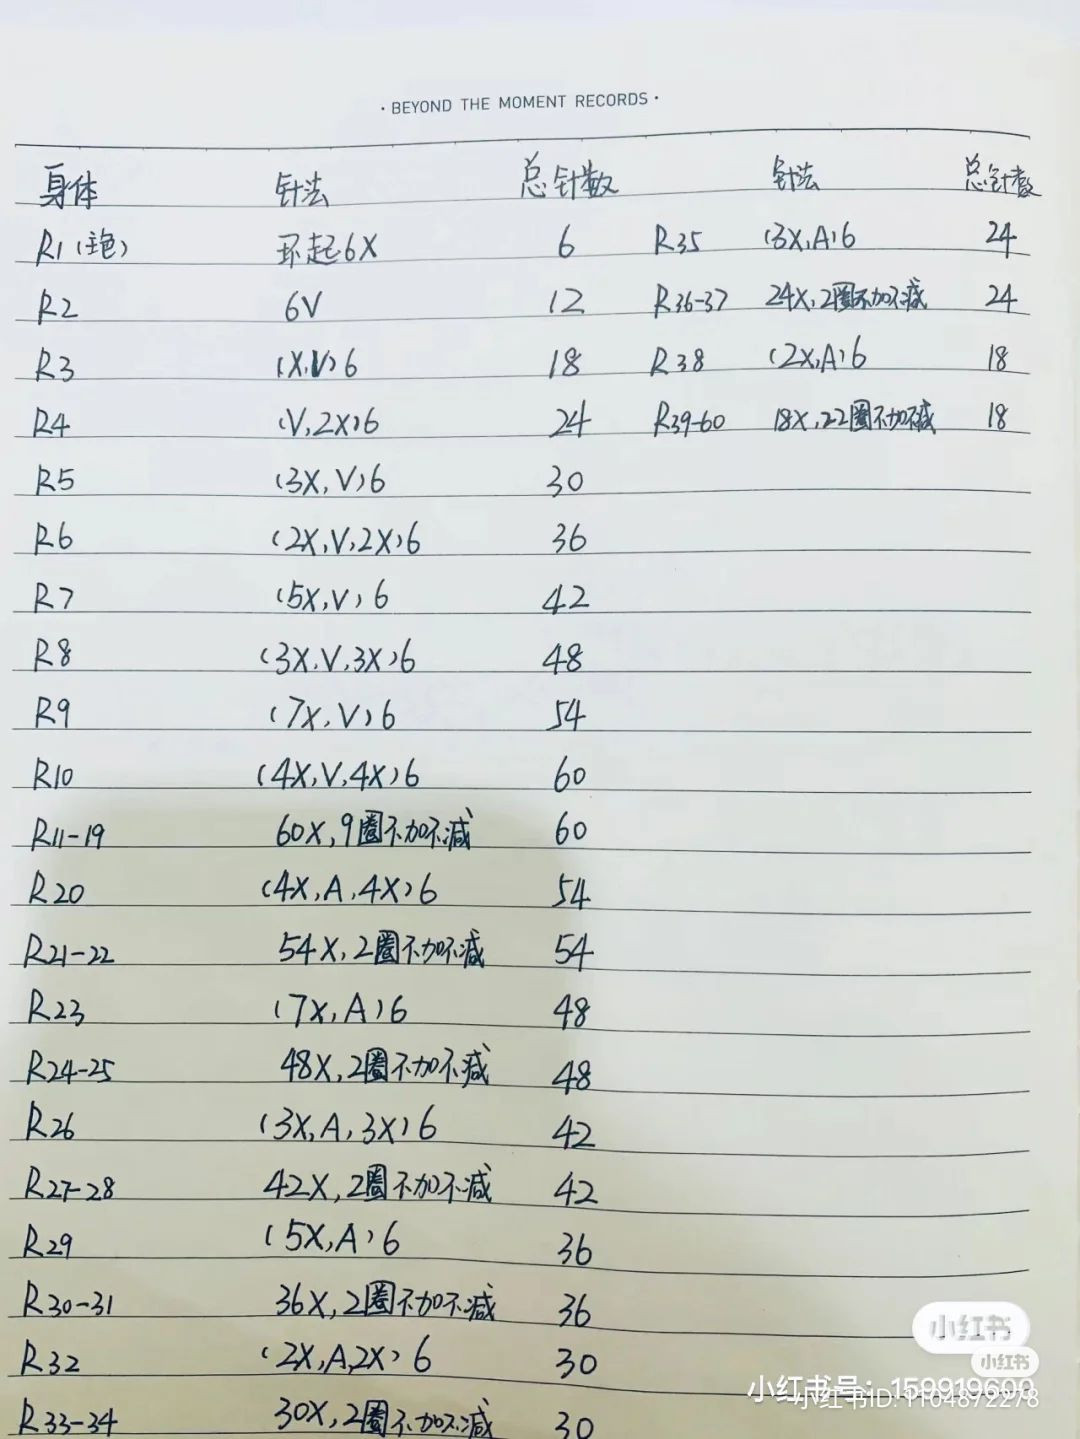 · BEYOND THE MOMENT RECORDS ·
身体 针法 总针数 针法 总针数
R1 环起6X 6 R35 (3X,A)6 24
R2 6V 12 R36-37 24X,2圈不加不减 24
R3 (X,V)6 18 R38 (2X,A)6 18
R4 (V,2X)6 24 R39-60 18X,22圈不加不减 18
R5 (3X,V)6 30
R6 (2X,V,2X)6 36
R7 (5X,V)6 42
R8 (3X,V,3X)6 48
R9 (7X,V)6 54
R10 (4X,V,4X)6 60
R11-19 60X,9圈不加不减 60
R20 (4X,A,4X)6 54
R21-22 54X,2圈不加不减 54
R23 (7X,A)6 48
R24-25 48X,2圈不加不减 48
R26 (3X,A,3X)6 42
R27-28 42X,2圈不加不减 42
R29 (5X,A)6 36
R30-31 36X,2圈不加不减 36
小红书
R32 (2X,A,2X)6 30
小红书
小红书号:
小红书ID: 1104872278
R33-34 30X,2圈不加不减 30